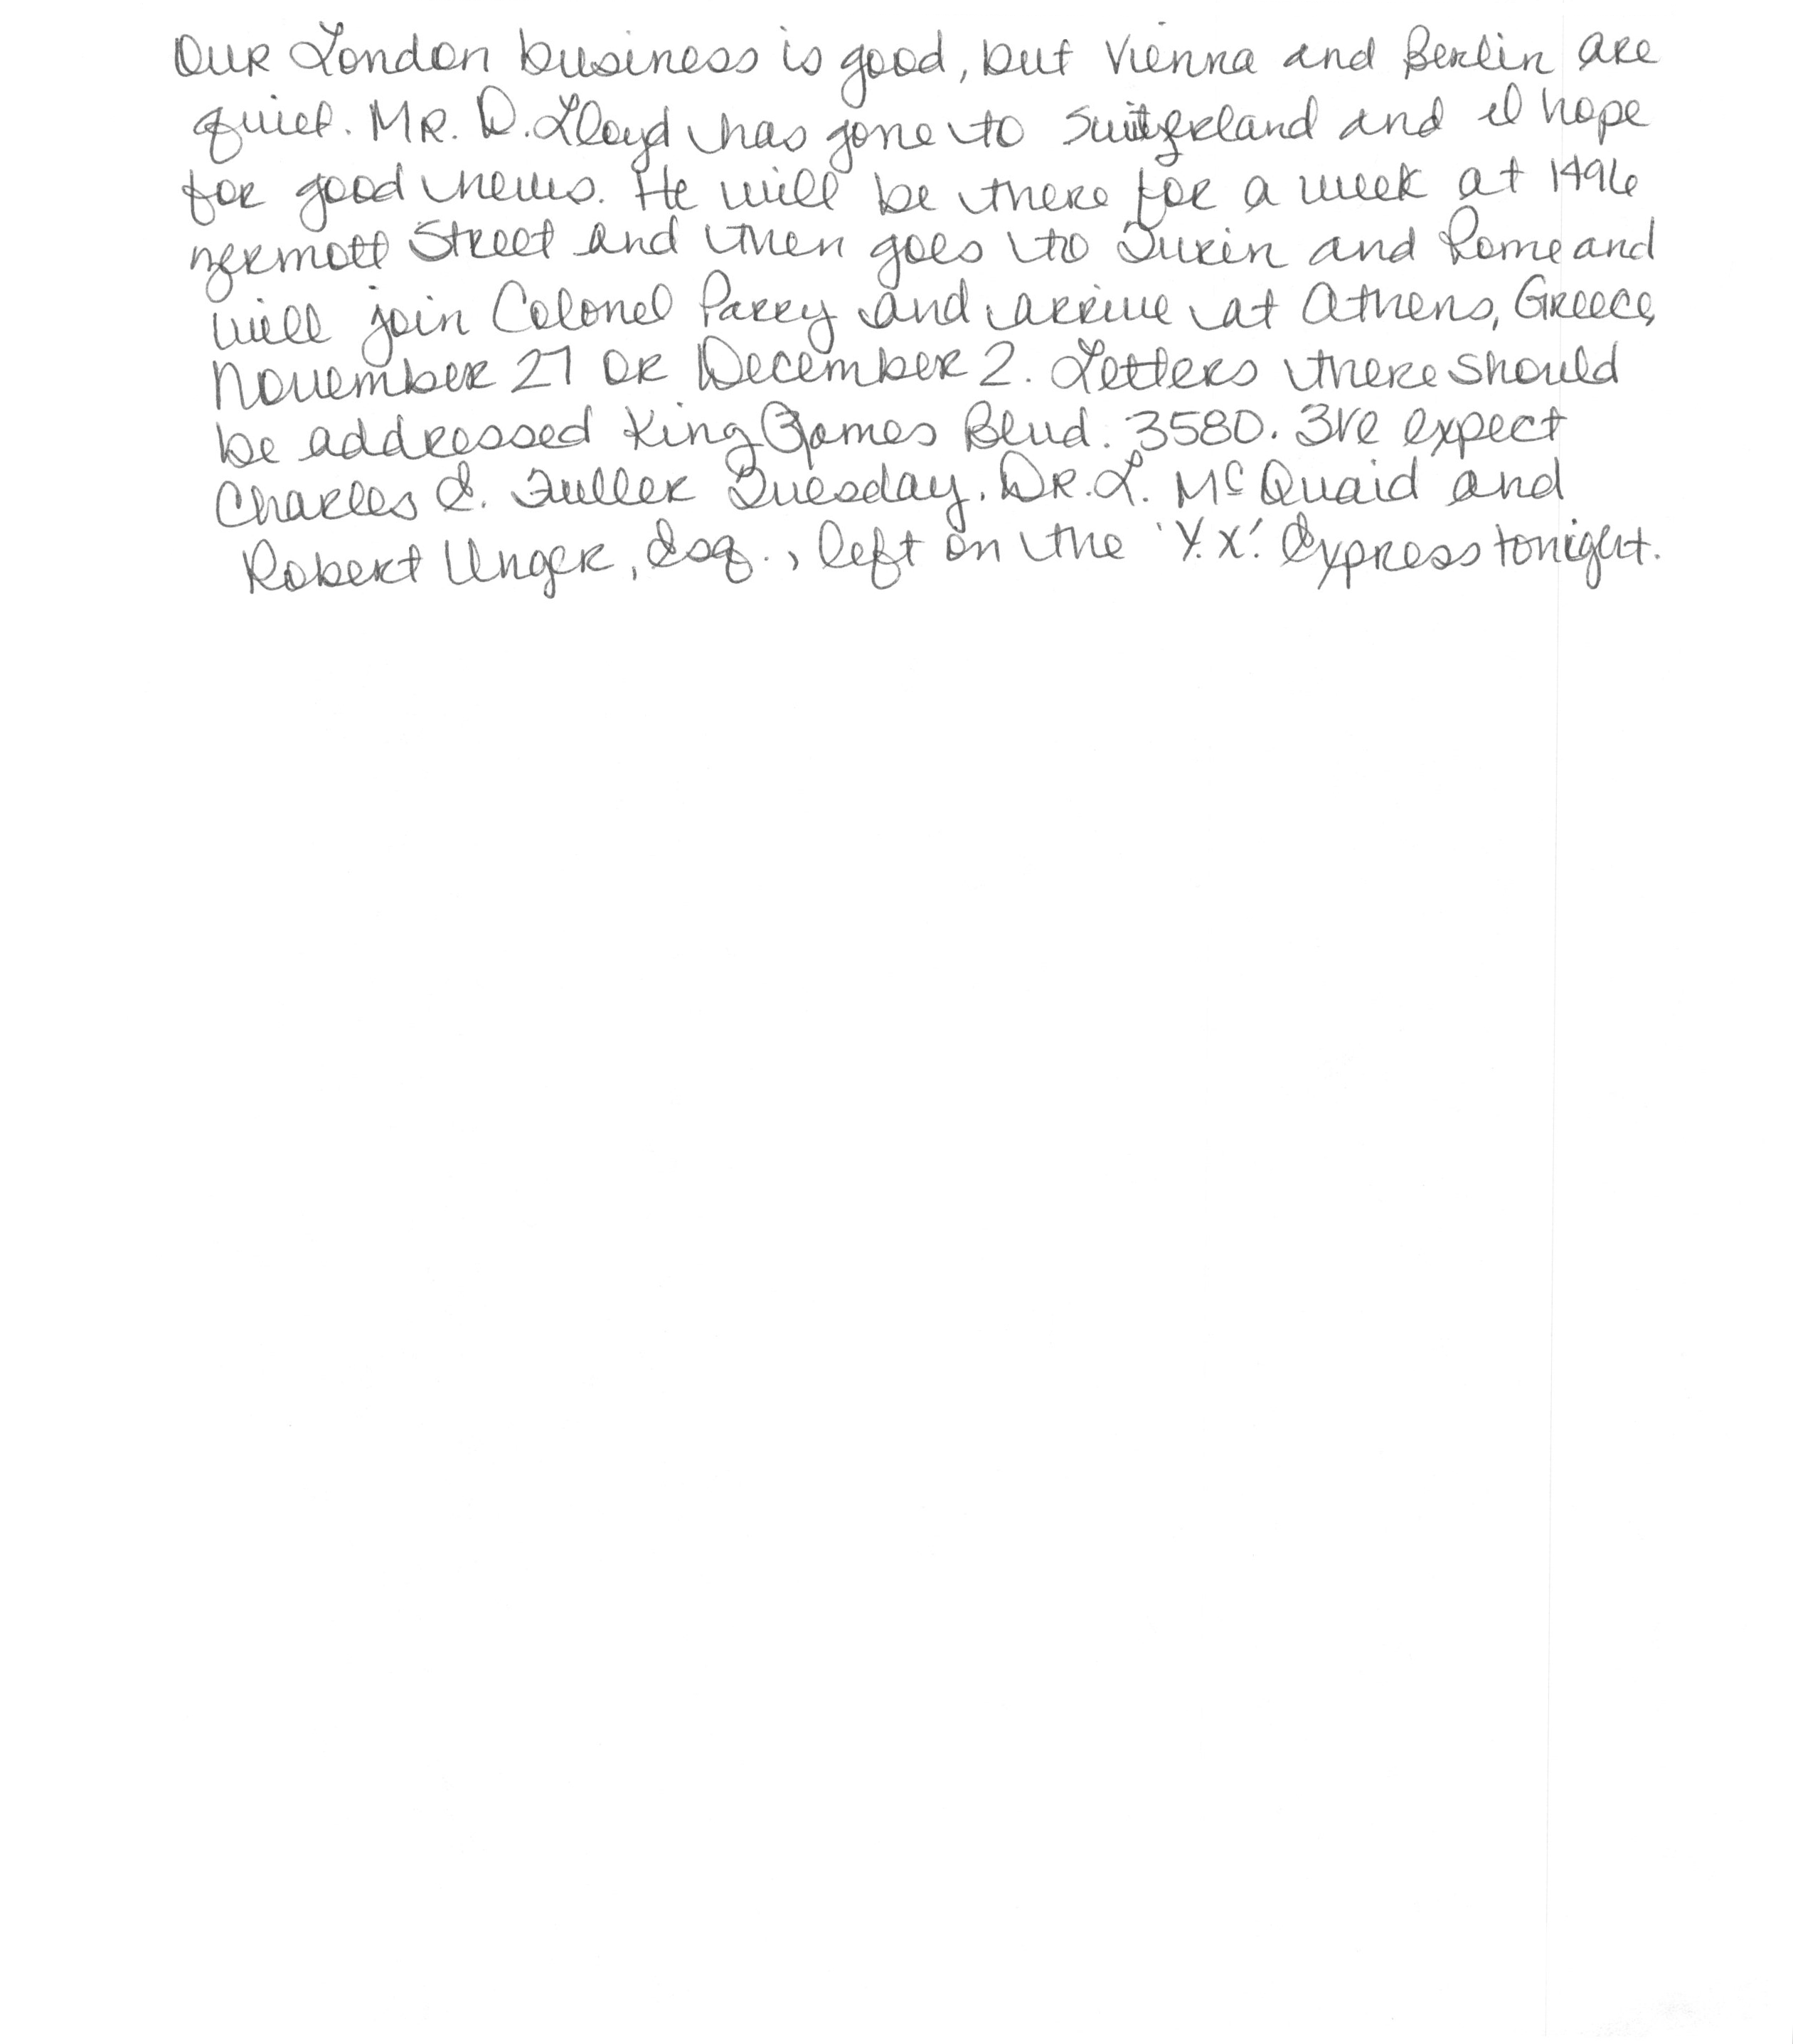 Our London business is good, but Vienna and Berlin are
quiet. Mr. D. Lloyd has gone to Switzerland and I hope
for good news. He will be there for a week at 1496
Zermott Street and then goes to Turin and Rome and
will join Colonel Parry and arrive at Athens, Greece,
November 27 or December 2. Letters there should
be addressed King James Blvd. 3580. We expect
Charles E. Fuller Tuesday. Dr. L. McQuaid and
Robert Unger, Esq., left on the 'Y.X.' Express tonight.